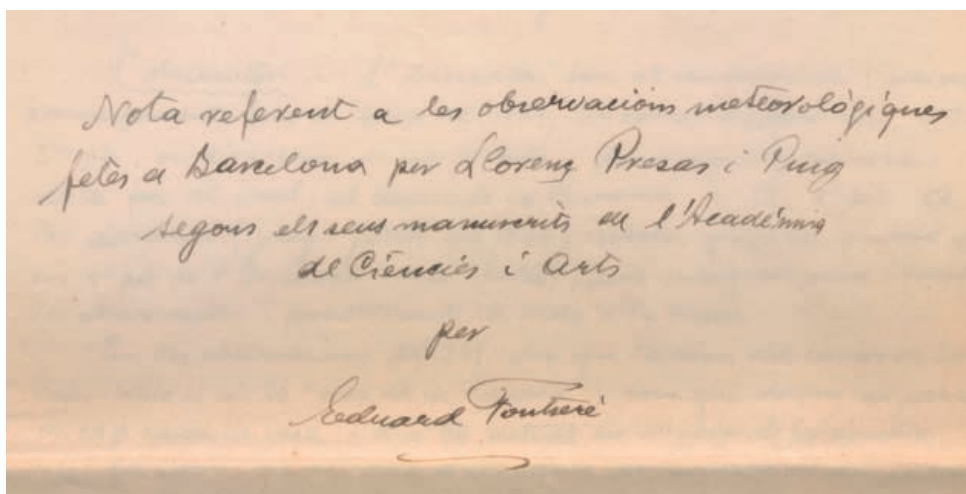 Nota referent a les observacions meteorològiques
fetes a Barcelona per Llorenç Presas i Puig
segons els seus manuscrits en l'Acadèmia
de Ciències i Arts
per
Eduard Fontserè